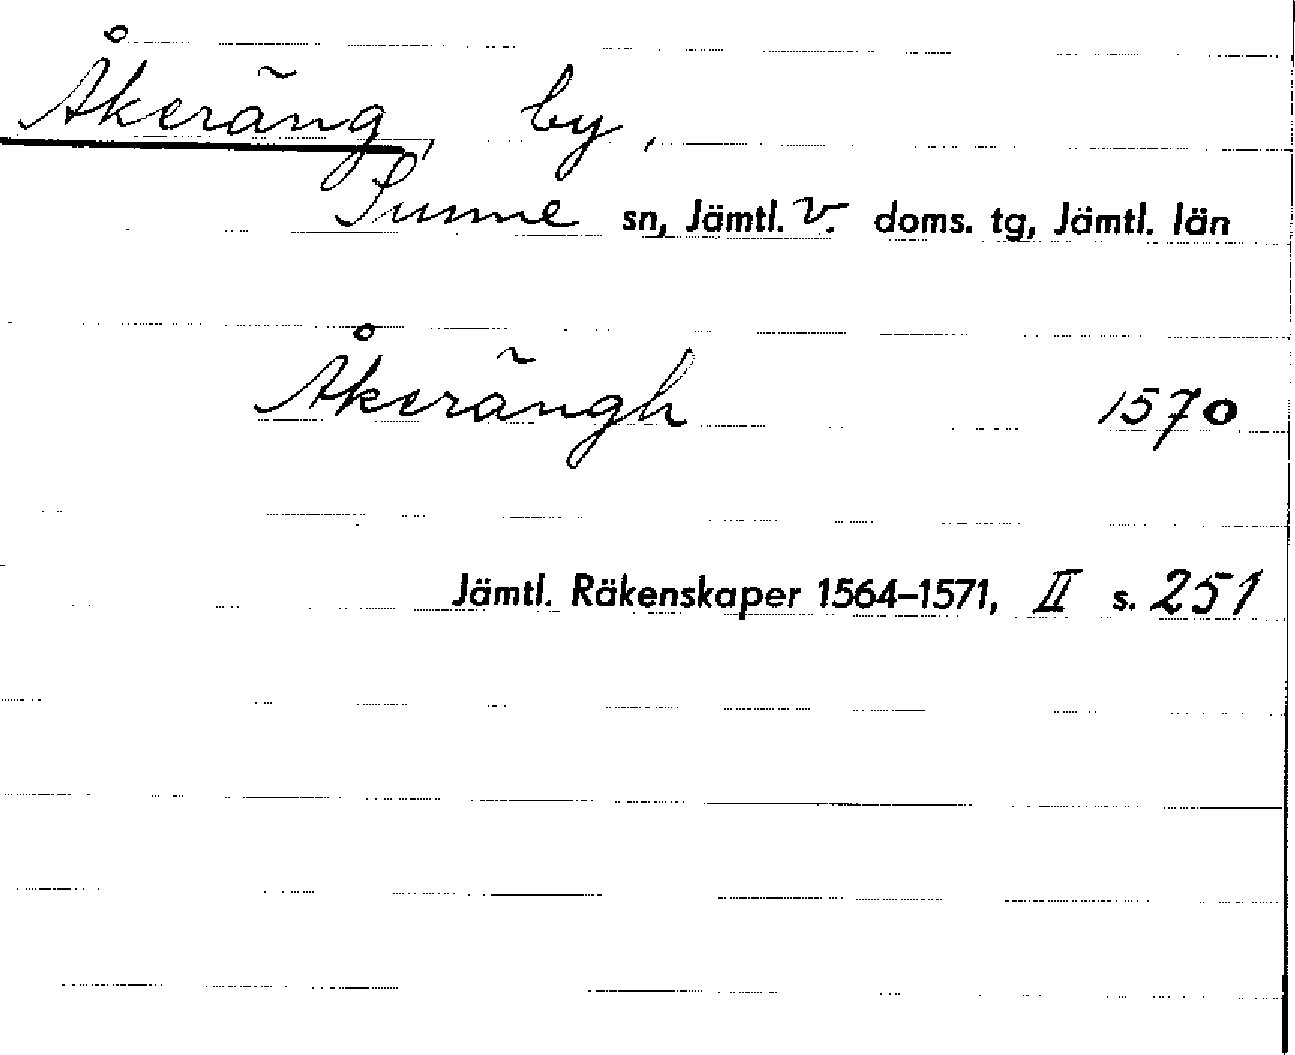 Åkeräng, by,
Sunne sn, Jämtl. v. doms. tg, Jämtl. län
Åkerängh 1570
Jämtl. Räkenskaper 1564–1571, II s. 251